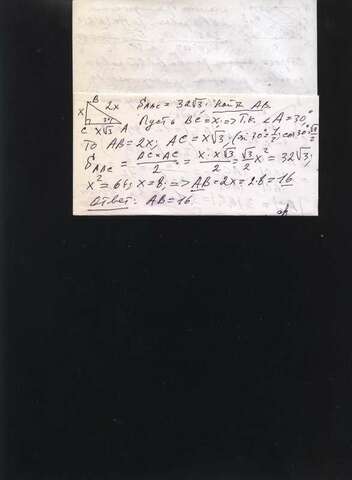 B
x 2x
30°
C x√3 A
S ABC = 32√3. Найти AB.
Пусть BC = x => т.к. ∠A = 30°,
то AB = 2x, AC = x√3. (sin 30° = 1/2; cos 30° = √3/2
S ABC = BC·AC/2 = x·x√3/2 = √3/2 x² = 32√3;
x² = 64; x = 8; => AB = 2x = 2·8 = 16
Ответ: AB = 16.